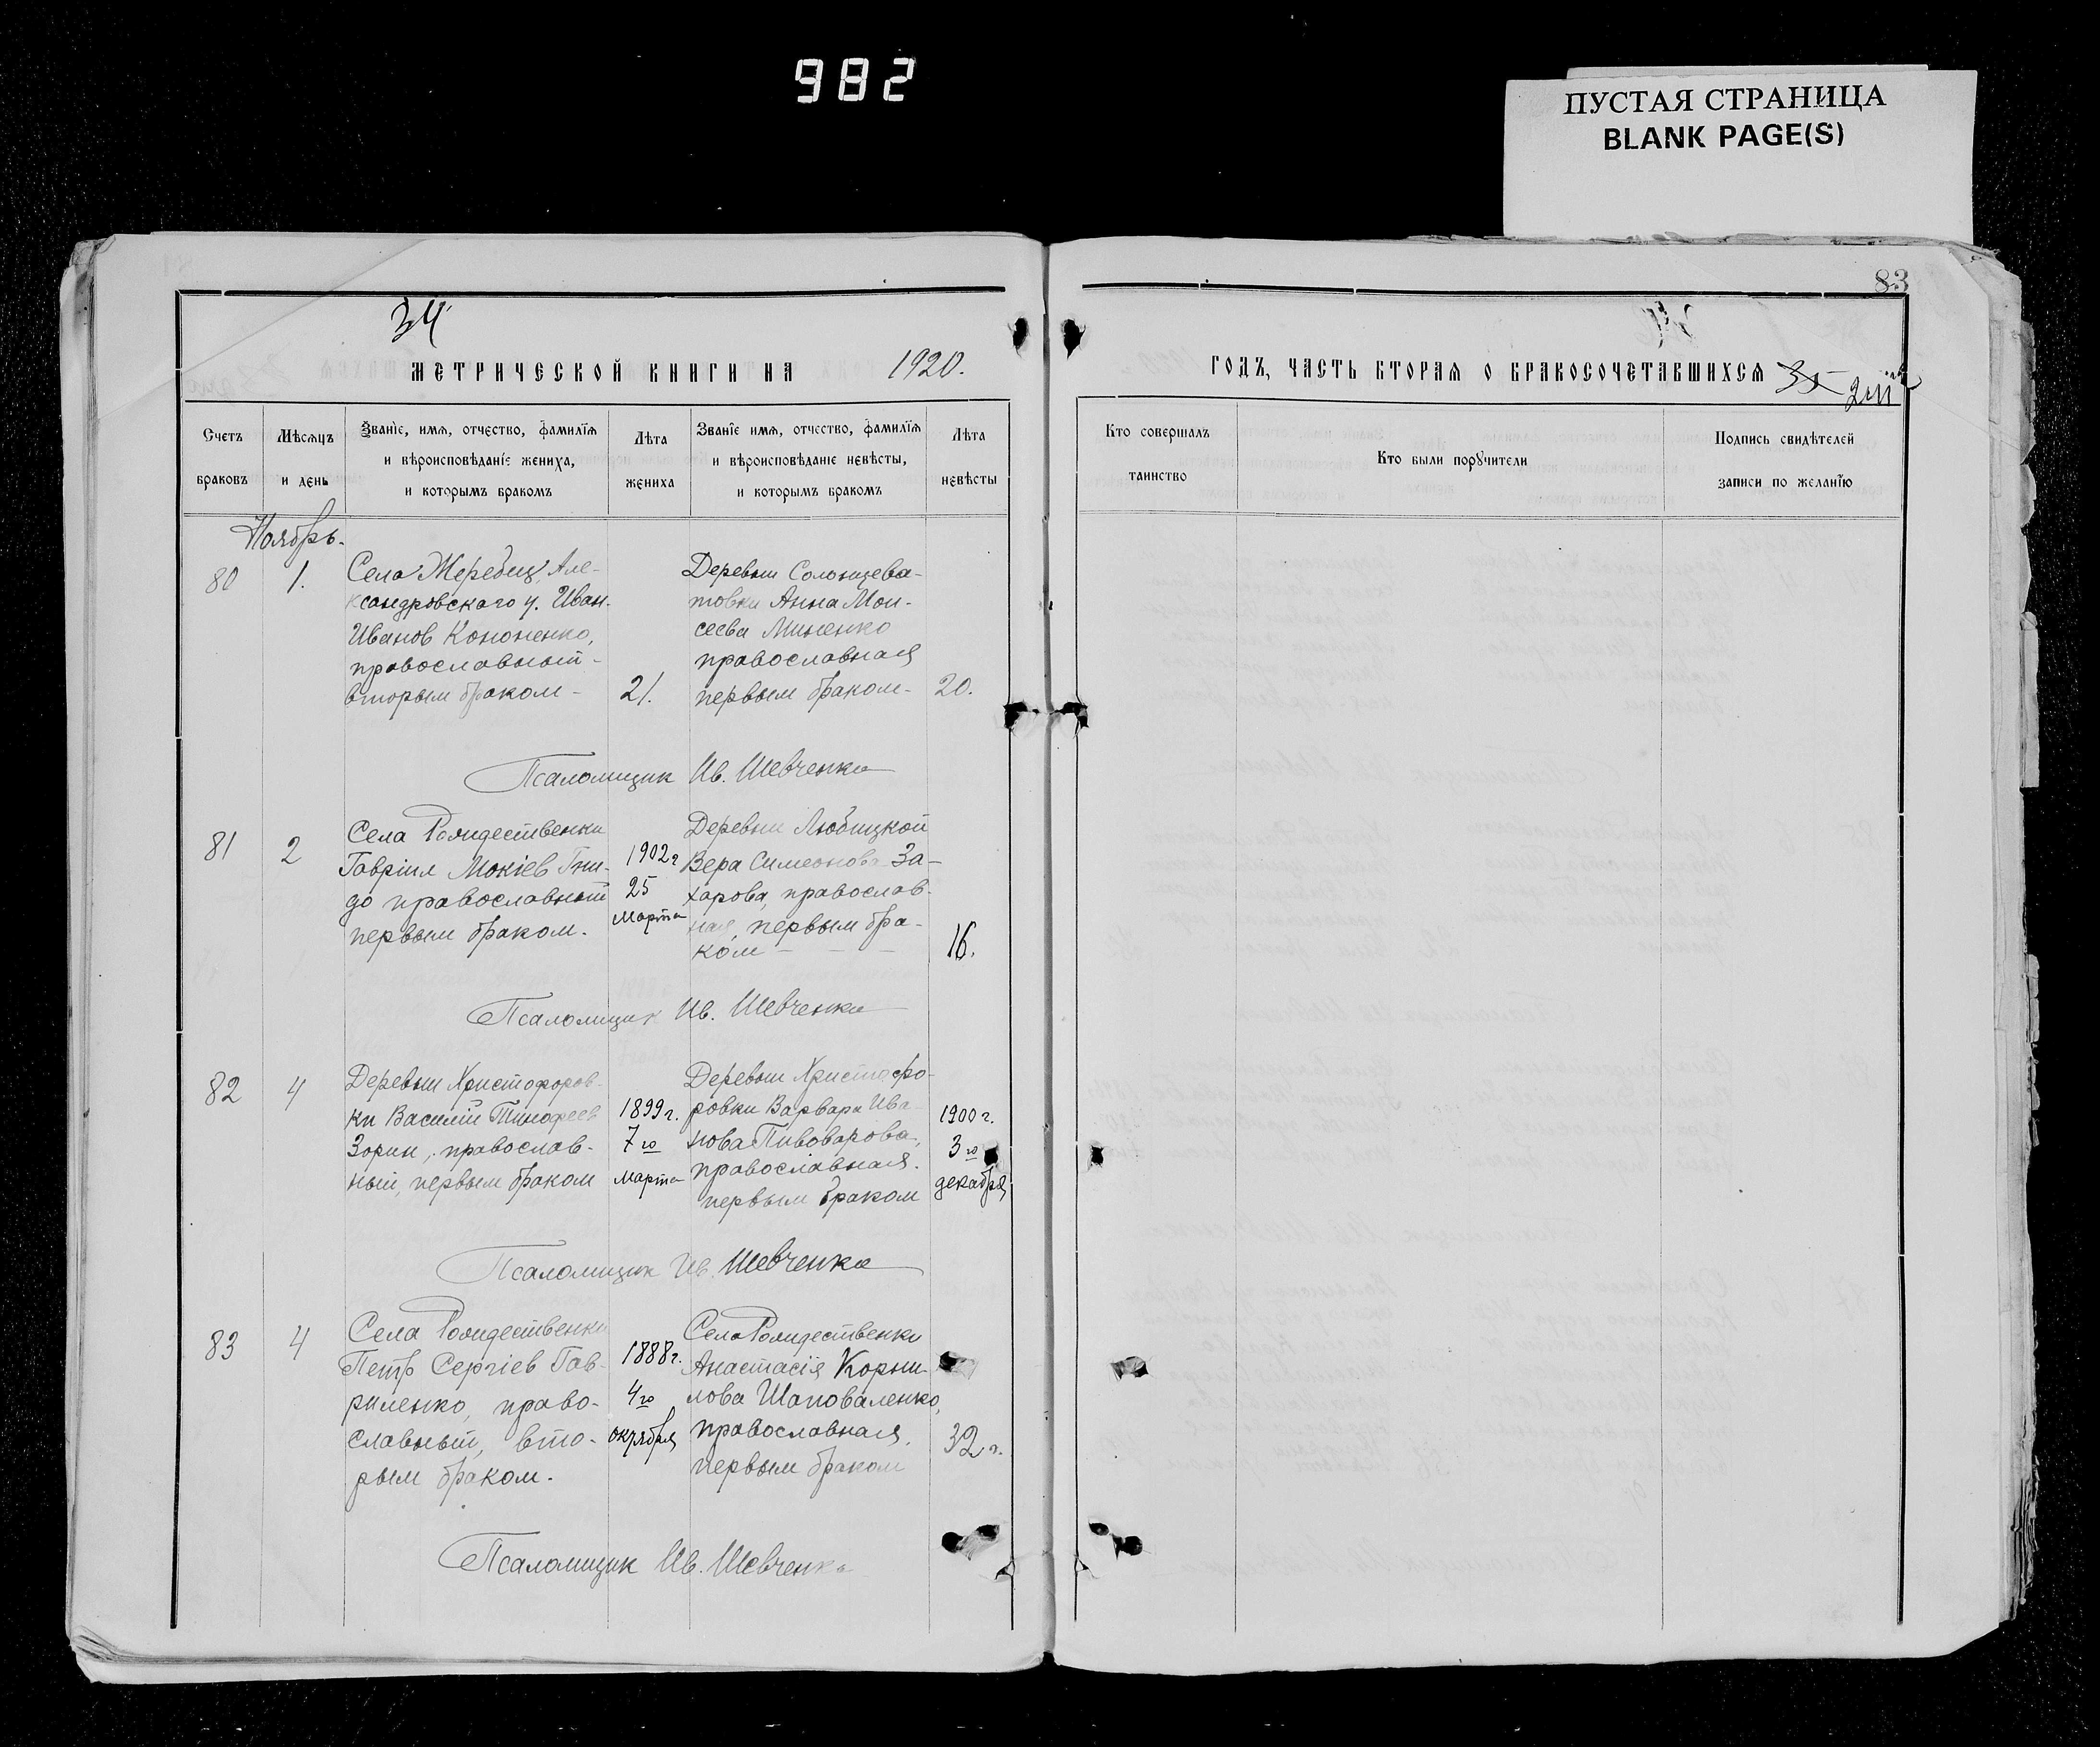 982
ПУСТАЯ СТРАНИЦА
BLANK PAGE(S)
83
34
МЕТРИЧЕСКОЙ КНИГИ НА 1920.
ГОДЪ, ЧАСТЬ ВТОРАЯ О БРАКОСОЧЕТАВШИХСЯ 35
Счетъ браковъ
Мѣсяцъ и день
Званіе, имя, отчество, фамилїя
и вѣроисповѣданіе жениха,
и которымъ бракомъ
Лѣта жениха
Званїе имя, отчество, фамилїя
и вѣроисповѣданіе невѣсты,
и которымъ бракомъ
Лѣта невѣсты
Кто совершалъ таинство
Кто были порꙋчители
Подпись свидѣтелей
записи по желанїю
Ноябрь.
80
1.
Села Жеребец, Але-
ксандровского у. Иван
Иванов Кононенко,
православный -
вторым браком -
21.
Деревни Солонцева-
товки Анна Мои-
сеева Миненко
православная
первым браком -
20.
Псаломщик Ив. Шевченко
81
2
Села Рождественки
Гавріил Мокіев Гни-
до православный
первым браком.
1902 г
25
марта
Деревни Любицкой
Вера Симеонова За-
харова, православ-
ная, первым бра-
ком - - -
16.
Псаломщик Ив. Шевченко
82
4
Деревни Христофоров-
ки Василій Тимофеев
Зорин, православ-
ный, первым браком
1899 г.
7го
марта
Деревни Христофо-
ровки Варвара Ива-
нова Пивоварова,
православная.
первым браком
1900 г.
3го
декабря
Псаломщик Ив. Шевченко
83
4
Села Рождественки
Петр Сергіев Гав-
риленко, право-
славный, вто-
рым браком.
1888 г.
4го
октября
Села Рождественки
Анастасія Корни-
лова Шаповаленко,
православная,
первым браком
32 г.
Псаломщик Ив. Шевченко